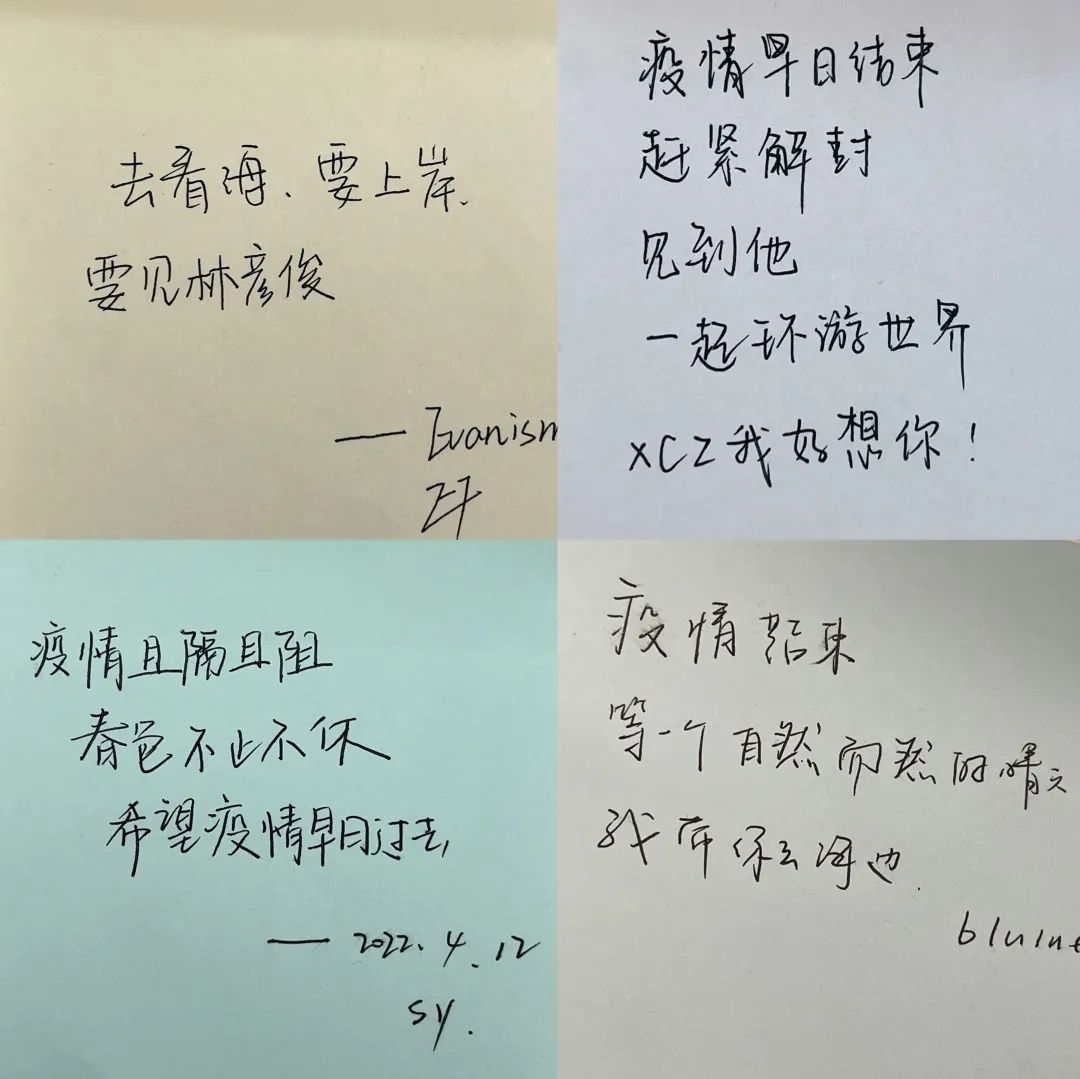 去看海、要上岸、
要见林彦俊
—— Evanism
疫情早日结束
赶紧解封
见到他
一起环游世界
XCZ我好想你！
疫情且隔且阻
春色不止不休
希望疫情早日过去，
—— 2022.4.12
sy.
疫情结束
等一个自然而然的晴天
我带你去海边.